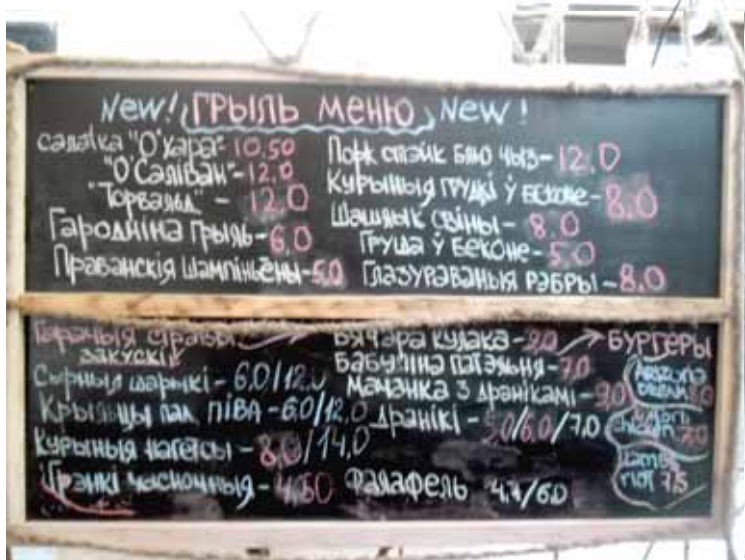 New! ГРЫЛЬ МЕНЮ New!
салатка "О'Хара" - 10.50
"О'Саліван" - 12.0
"Торвальд" - 12.0
Гародніна грыль - 6.0
Праванскія шампіньёны - 5.0
Порк стэйк блю чыз - 12.0
Курыныя грудкі ў беконе - 8.0
Шашлык свіны - 8.0
Груша ў беконе - 5.0
Глазураваныя рэбры - 8.0
Гарачыя стравы
закускі
Сырныя шарыкі - 6.0/12.0
Крыльцы пад піва - 6.0/12.0
Курыныя нагетсы - 8.0/14.0
Грэнкі часночныя - 4.50
Вячэра кулака - 9.0
Бабуліна патэльня - 7.0
Мачанка з дранікамі - 9.0
Дранікі - 5.0/6.0/7.0
Фалафель 4.7/6.0
БУРГЕРЫ
Arizona
Dream
chicken
Lamb
riot 7.5